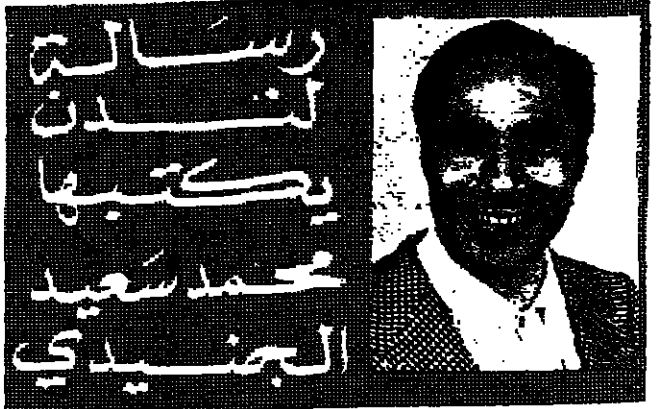 رسَالة
لندن
يكتبها
محمد سَعيد
الجنيدي